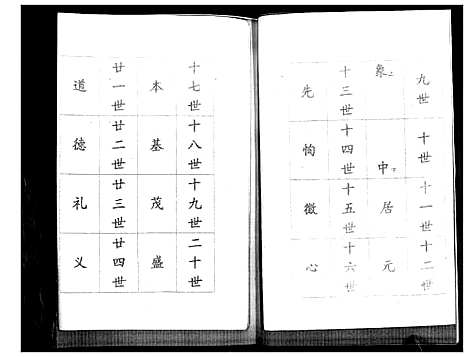 九世 十世 十一世 十二世
象 中 居 元
十三世 十四世 十五世 十六世
先 恂 徵 心
十七世 十八世 十九世 二十世
本 基 茂 盛
廿一世 廿二世 廿三世 廿四世
道 德 礼 义